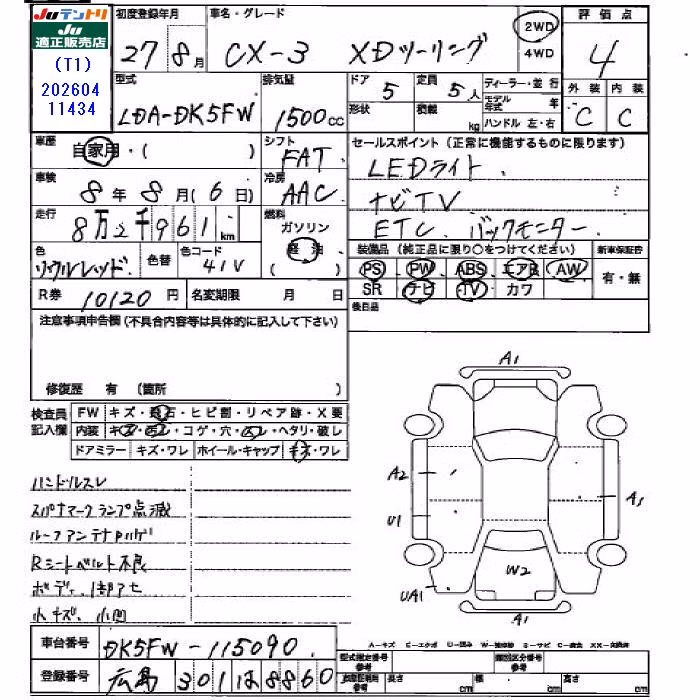 JUテントリ
JU
適正販売店
(T1)
202604
11434
初度登録年月
27 8月
車名・グレード
CX-3 XDツーリング
2WD
4WD
評価点
4
外装 内装
C C
型式
LDA-DK5FW
排気量
1500cc
ドア 5
定員 5人
形状
積載 kg
ディーラー・並行
モデル年式 年
ハンドル 左・右
車歴
自家用・( )
シフト
FAT
セールスポイント(正常に機能するものに限ります)
LEDライト
ナビTV
ETC. バックモニター.
車検
8年8月(6日)
冷房
AAC
走行
8万2千961km
燃料
ガソリン
軽油
( )
色
ソウルレッド.
色替
色コード
41V
装備品(純正品に限り○をつけてください)
新車保証書
PS PW ABS エアB AW
SR ナビ TV カワ
有・無
R券 10120円
名変期限 月 日
後日品
注意事項申告欄(不具合内容等は具体的に記入して下さい)
修復歴 有 (箇所 )
検査員
記入欄
FW キズ・飛石・ヒビ割・リペア跡・X要
内装 キズ・汚レ・コゲ・穴・凹レ・ヘタリ・破レ
ドアミラー キズ・ワレ ホイール・キャップ キズ・ワレ
ハンドルスレ
スパナマークランプ点滅
ルーフアンテナハゲ
Rシートベルト不良
ボディ1部アセ
小キズ、小凹
A1
A2
U1
UA1
A1
W2
A1
車台番号 DK5FW-115090
登録番号 広島 301 は 8860
A-キズ E-エクボ U-凹み W-補修跡 S-サビ C-腐食 XX-交換済
型式指定番号
参考
類別区分番号
参考
長さ cm
幅 cm
高さ cm